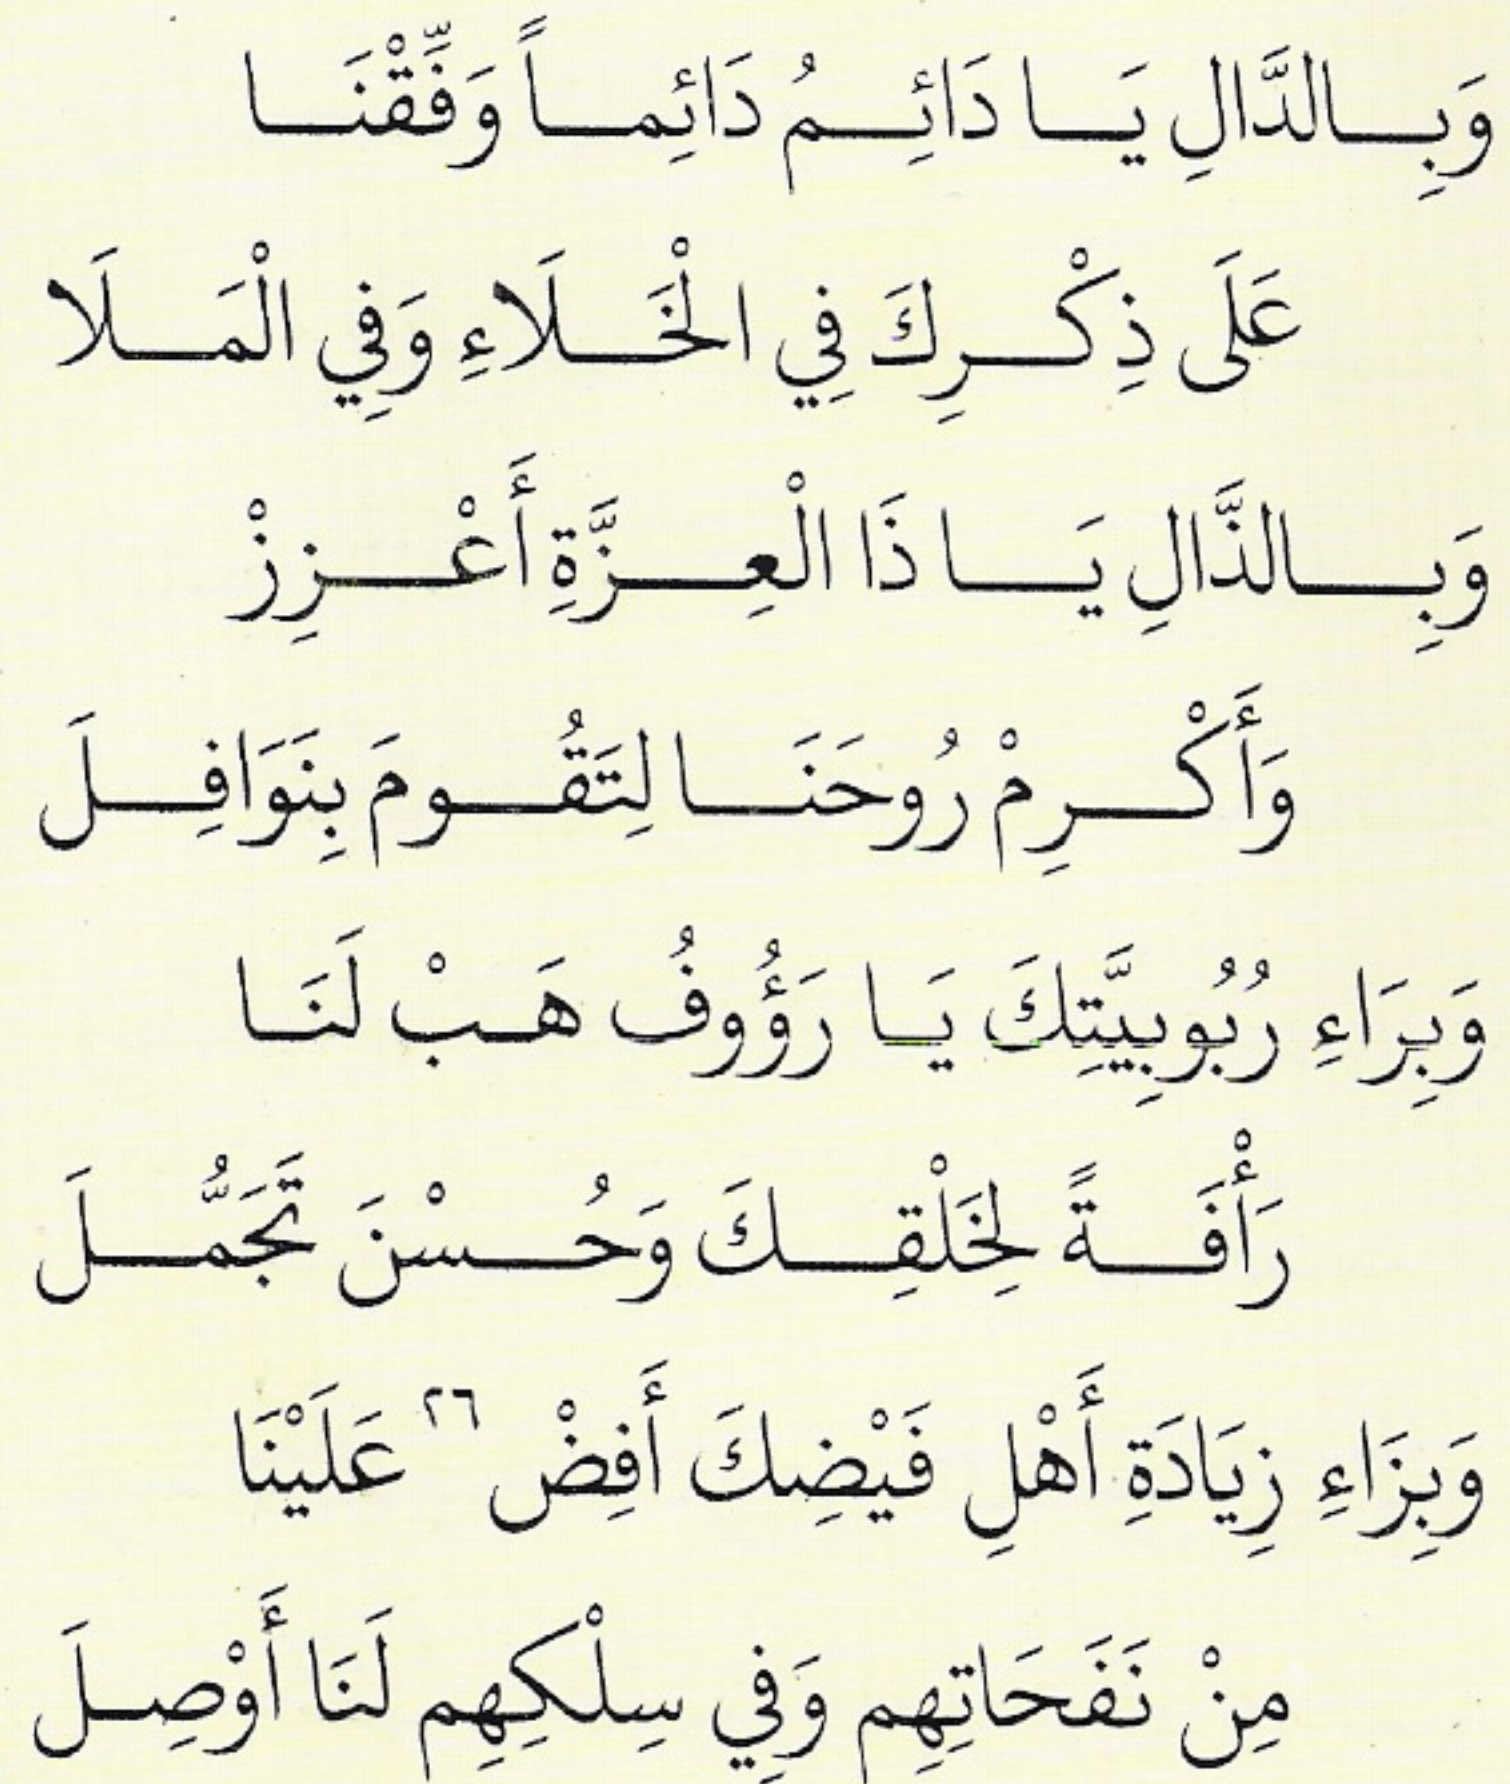 وَبِالدَّالِ يَا دَائِمُ دَائِماً وَفِّقْنَا
عَلَى ذِكْرِكَ فِي الْخَلَاءِ وَفِي الْمَلَا
وَبِالذَّالِ يَا ذَا الْعِزَّةِ أَعْزِزْ
وَأَكْرِمْ رُوحَنَا لِتَقُومَ بِنَوَافِلَ
وَبِرَاءِ رُبُوبِيَّتِكَ يَا رَؤُوفُ هَبْ لَنَا
رَأْفَةً لِخَلْقِكَ وَحُسْنَ تَجَمُّلَ
وَبِزَاءِ زِيَادَةِ أَهْلِ فَيْضِكَ أَفِضْ ٢٦ عَلَيْنَا
مِنْ نَفَحَاتِهِم وَفِي سِلْكِهِم لَنَا أَوْصِلَ